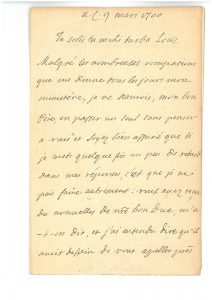 a L. 9 mars 1700
In solis tu mihi turba locis.
Malgré les nombreuses occupations
que me donne tous les jours mon
ministère, je ne saurois, mon bon
Père en passer un seul sans penser
a vous et soyez bien assuré que si
je mets quelque fois un peu de retard
dans mes réponses, c'est que je ne
puis faire autrement. vous avez reçu
des nouvelles de notre bon Duc, m'a
-t-on dit, et j'ai entendu dire qu'il
avait dessein de vous appeller près